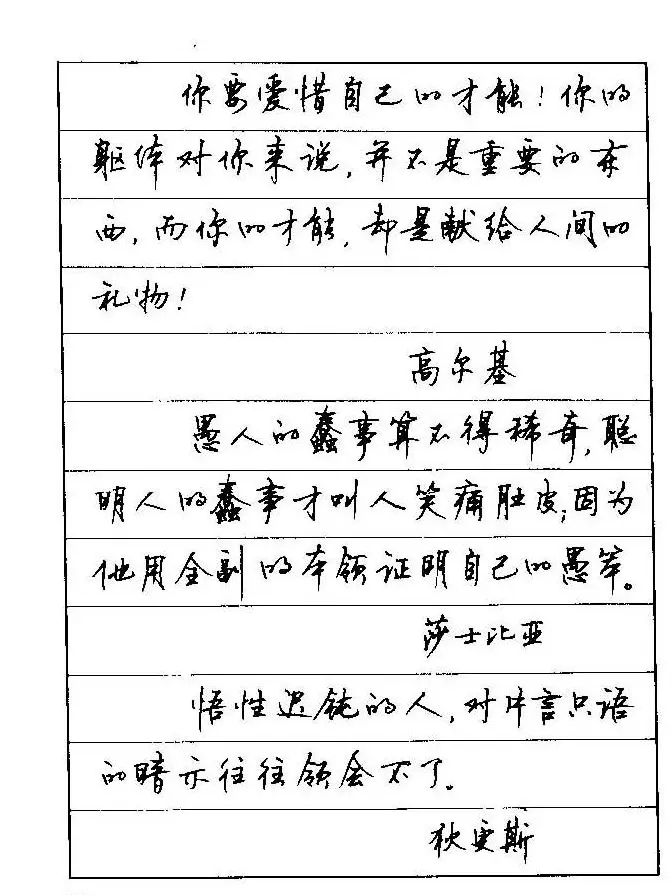 你要爱惜自己的才能！你的
躯体对你来说，并不是重要的东
西，而你的才能，却是献给人间的
礼物！
高尔基
愚人的蠢事算不得稀奇，聪
明人的蠢事才叫人笑痛肚皮；因为
他用全副的本领证明自己的愚笨。
莎士比亚
悟性迟钝的人，对片言只语
的暗示往往领会不了。
狄更斯